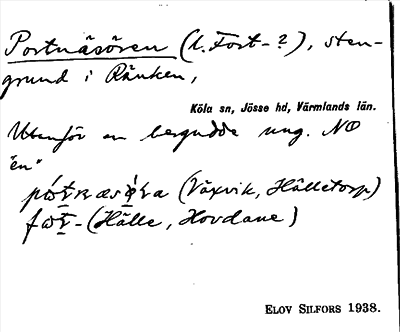 Portnäsören (l. Fort-?), sten-
grund i Ränken,
Köla sn, Jösse hd, Värmlands län.
Utanför en bergudde ung. NO
"en"
(Växvik, Hälletorp)
(Hälle, Hovdane)
ELOV SILFORS 1938.